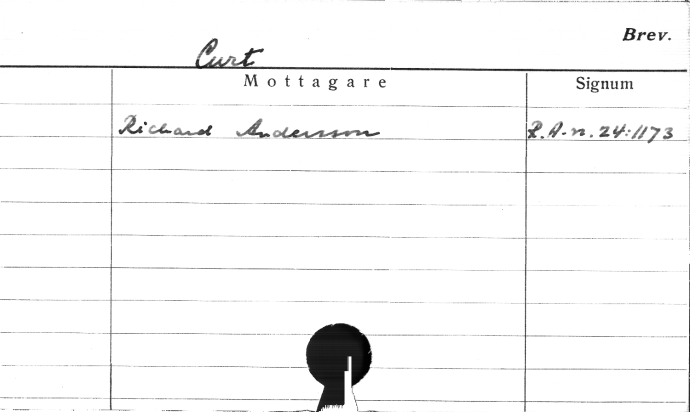 Brev.
Curt
Mottagare Signum
Richard Andersson R.A-n. 24:1173